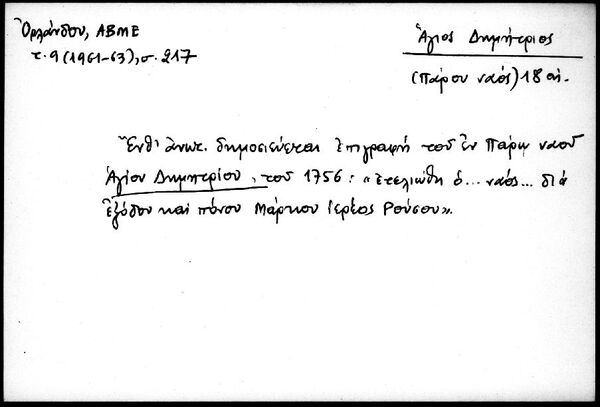 Ὀρλάνδου, ΑΒΜΕ
τ. 9 (1961-63), σ. 217
Ἅγιος Δημήτριος
(Πάρου ναός) 18 αἰ.
Ἔνθ' ἀνωτ. δημοσιεύεται ἐπιγραφή τοῦ ἐν Πάρῳ ναοῦ
Ἁγίου Δημητρίου, τοῦ 1756: «ἐτελιώθη ὁ... ναός... διά
ἐξόδου καί πόνου Μάρκου ἱερέος Ρούσου».